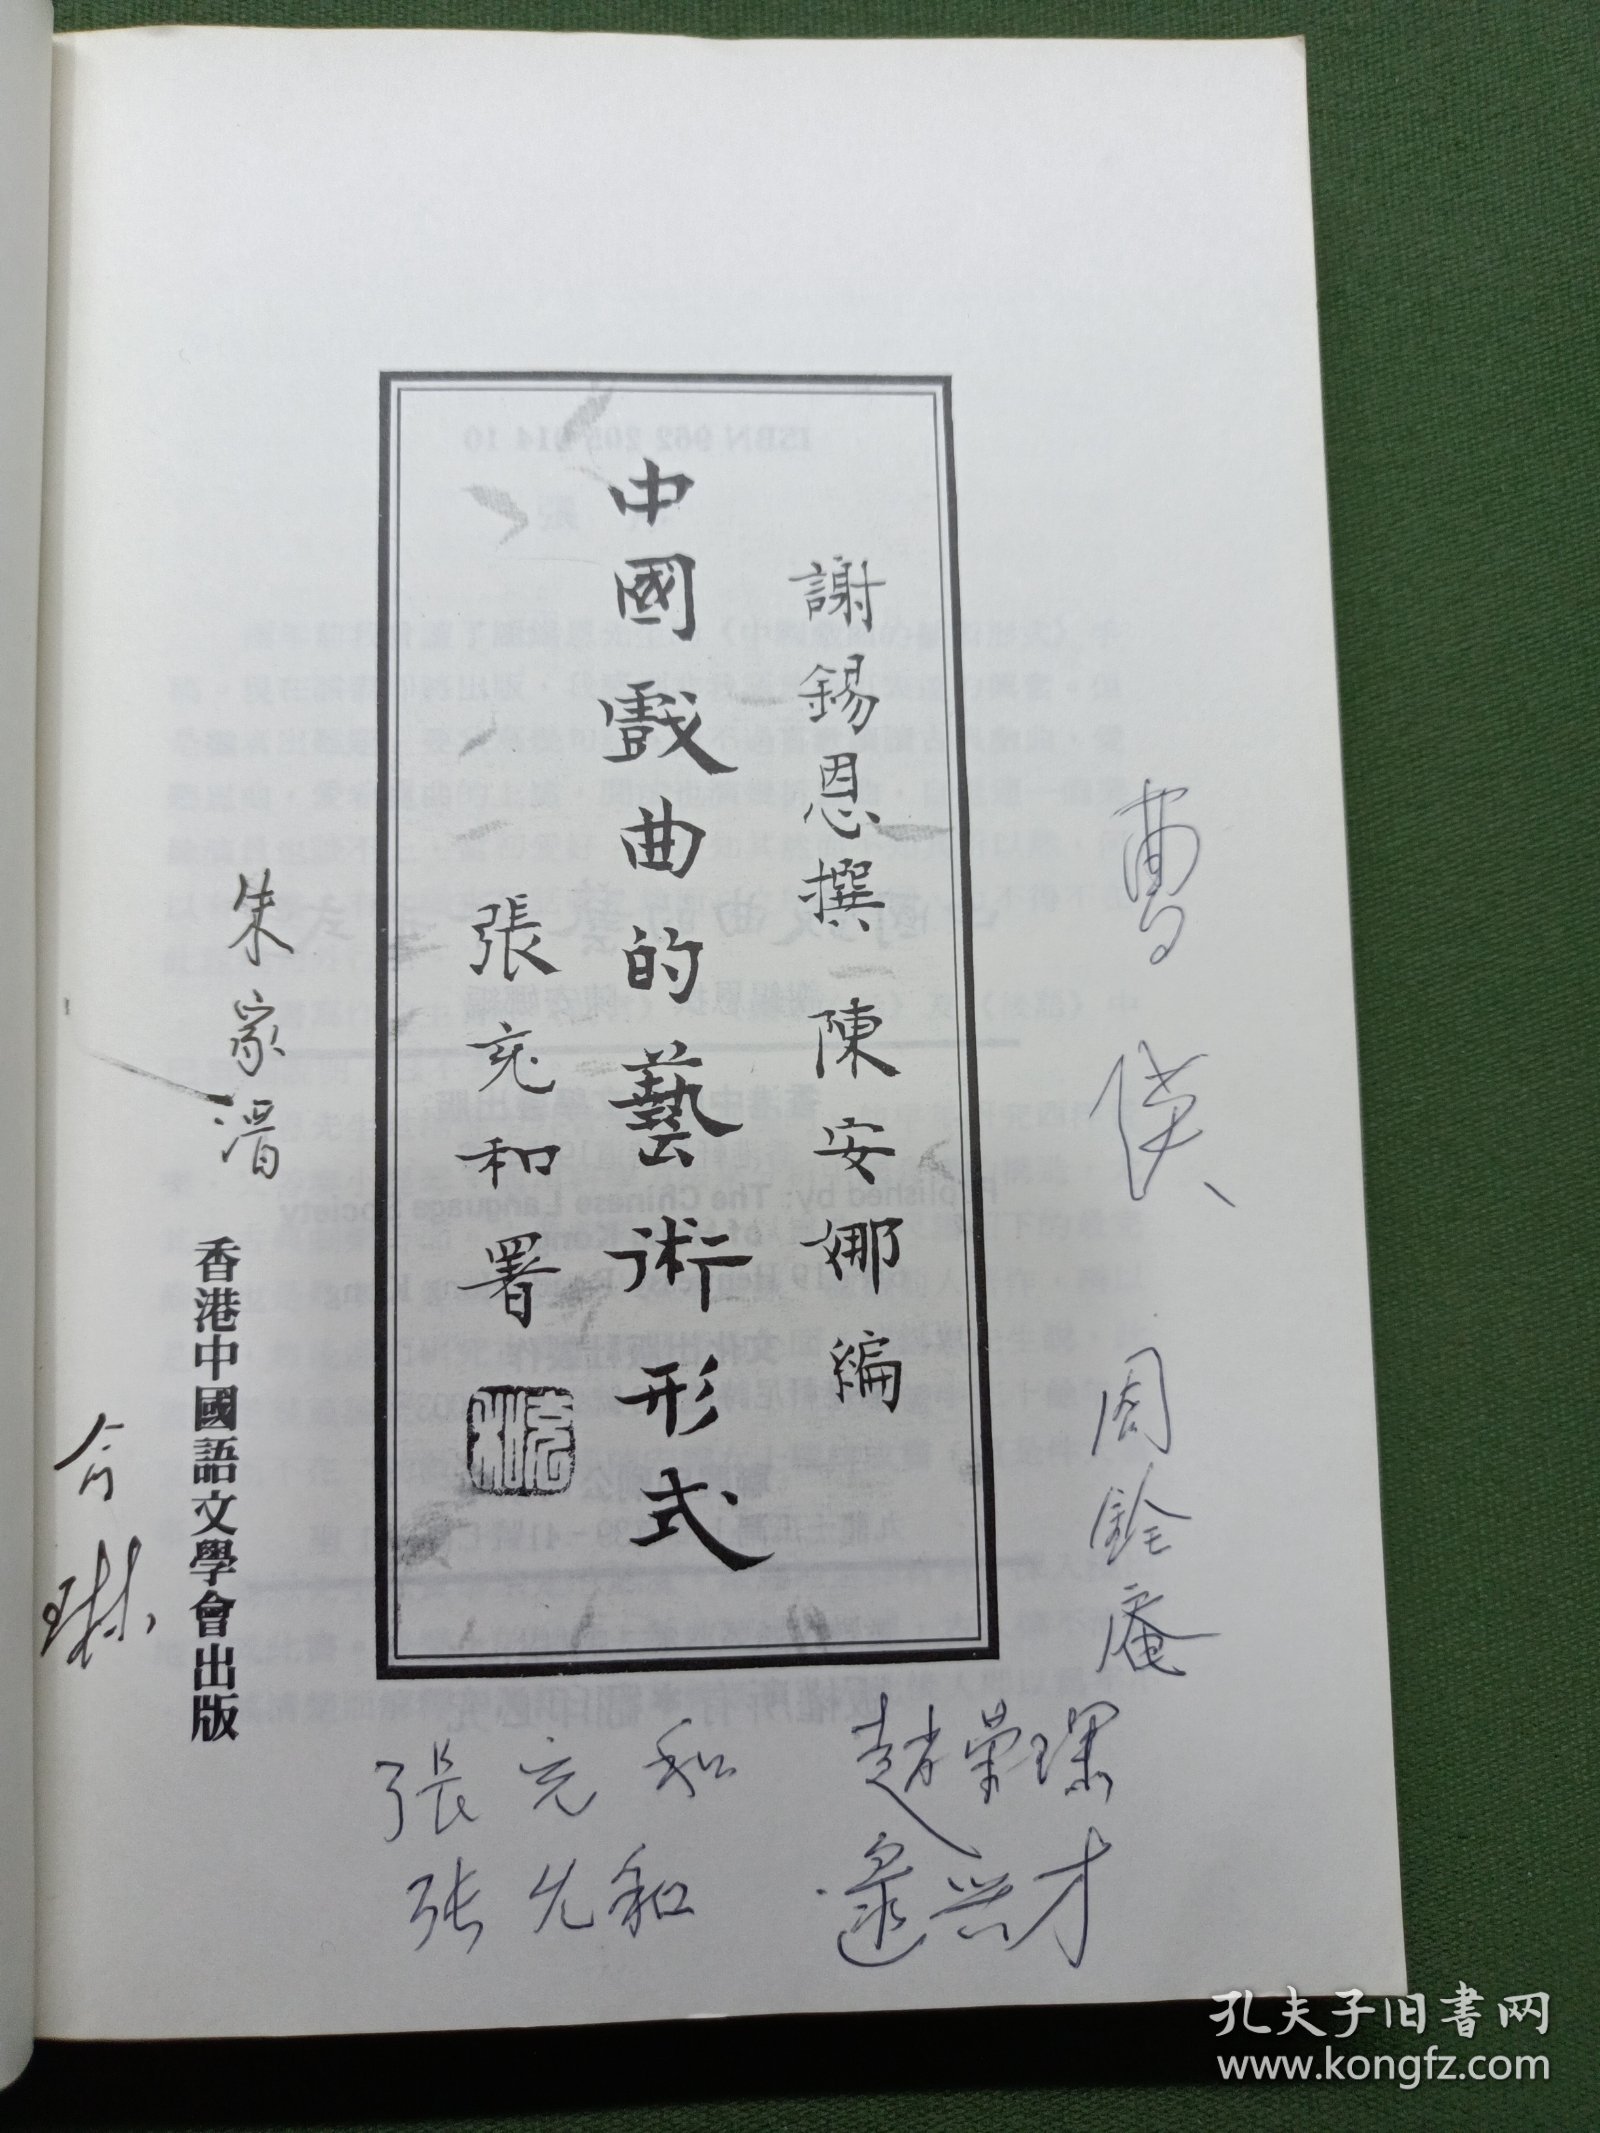 謝錫恩撰 陳安娜編
中國戲曲的藝術形式
張充和署
香港中國語文學會出版
朱家溍
曹
周銓庵
趙榮琛
張元和
张允和
孔夫子旧书网
www.kongfz.com